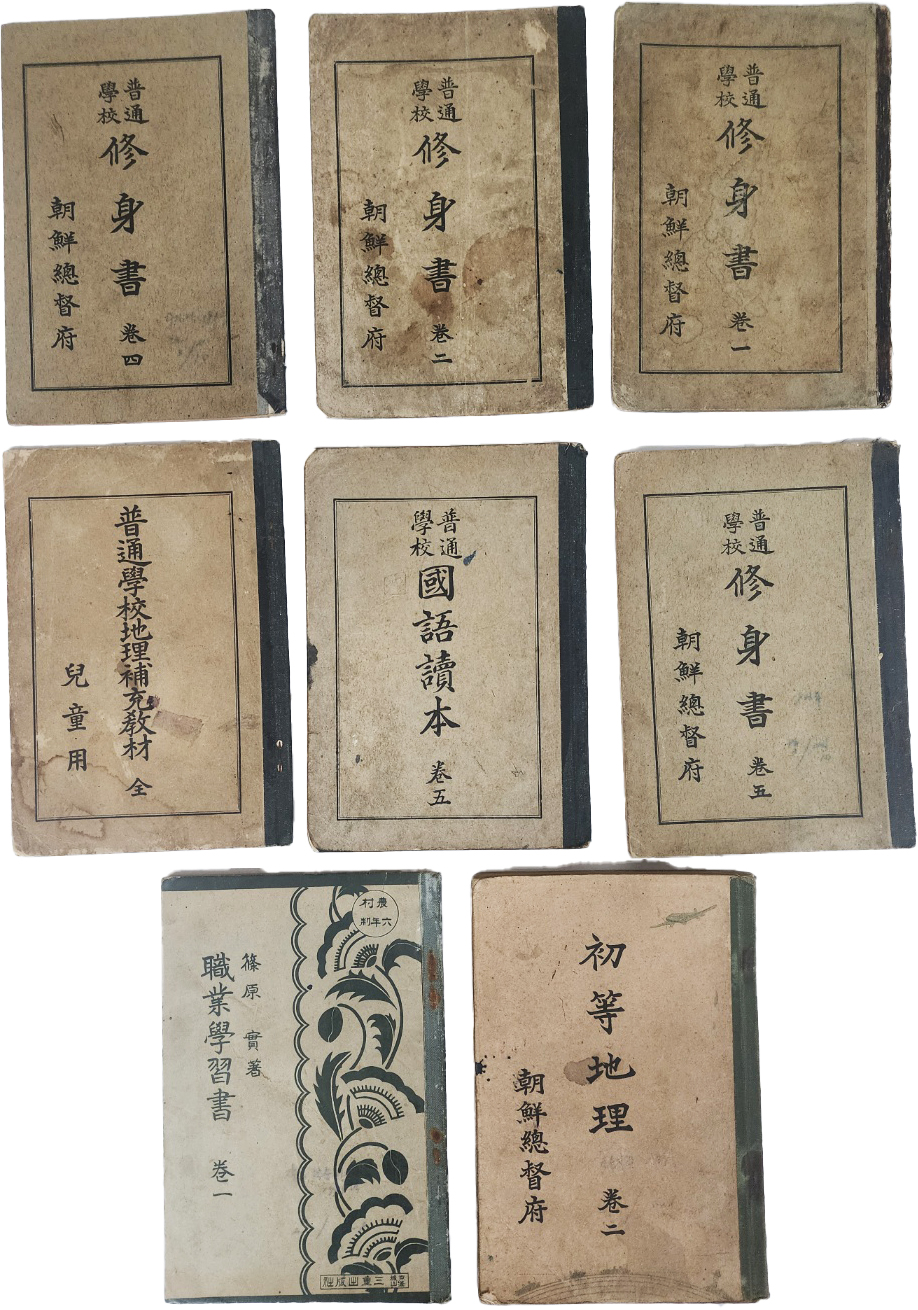 普通學校修身書 卷四
朝鮮總督府
普通學校修身書 卷二
朝鮮總督府
普通學校修身書 卷一
朝鮮總督府
普通學校地理補充教材 全
兒童用
普通學校國語讀本 卷五
普通學校修身書 卷五
朝鮮總督府
農村
六年制
篠原 實著
職業學習書 卷一
三重出版社
初等地理 卷二
朝鮮總督府